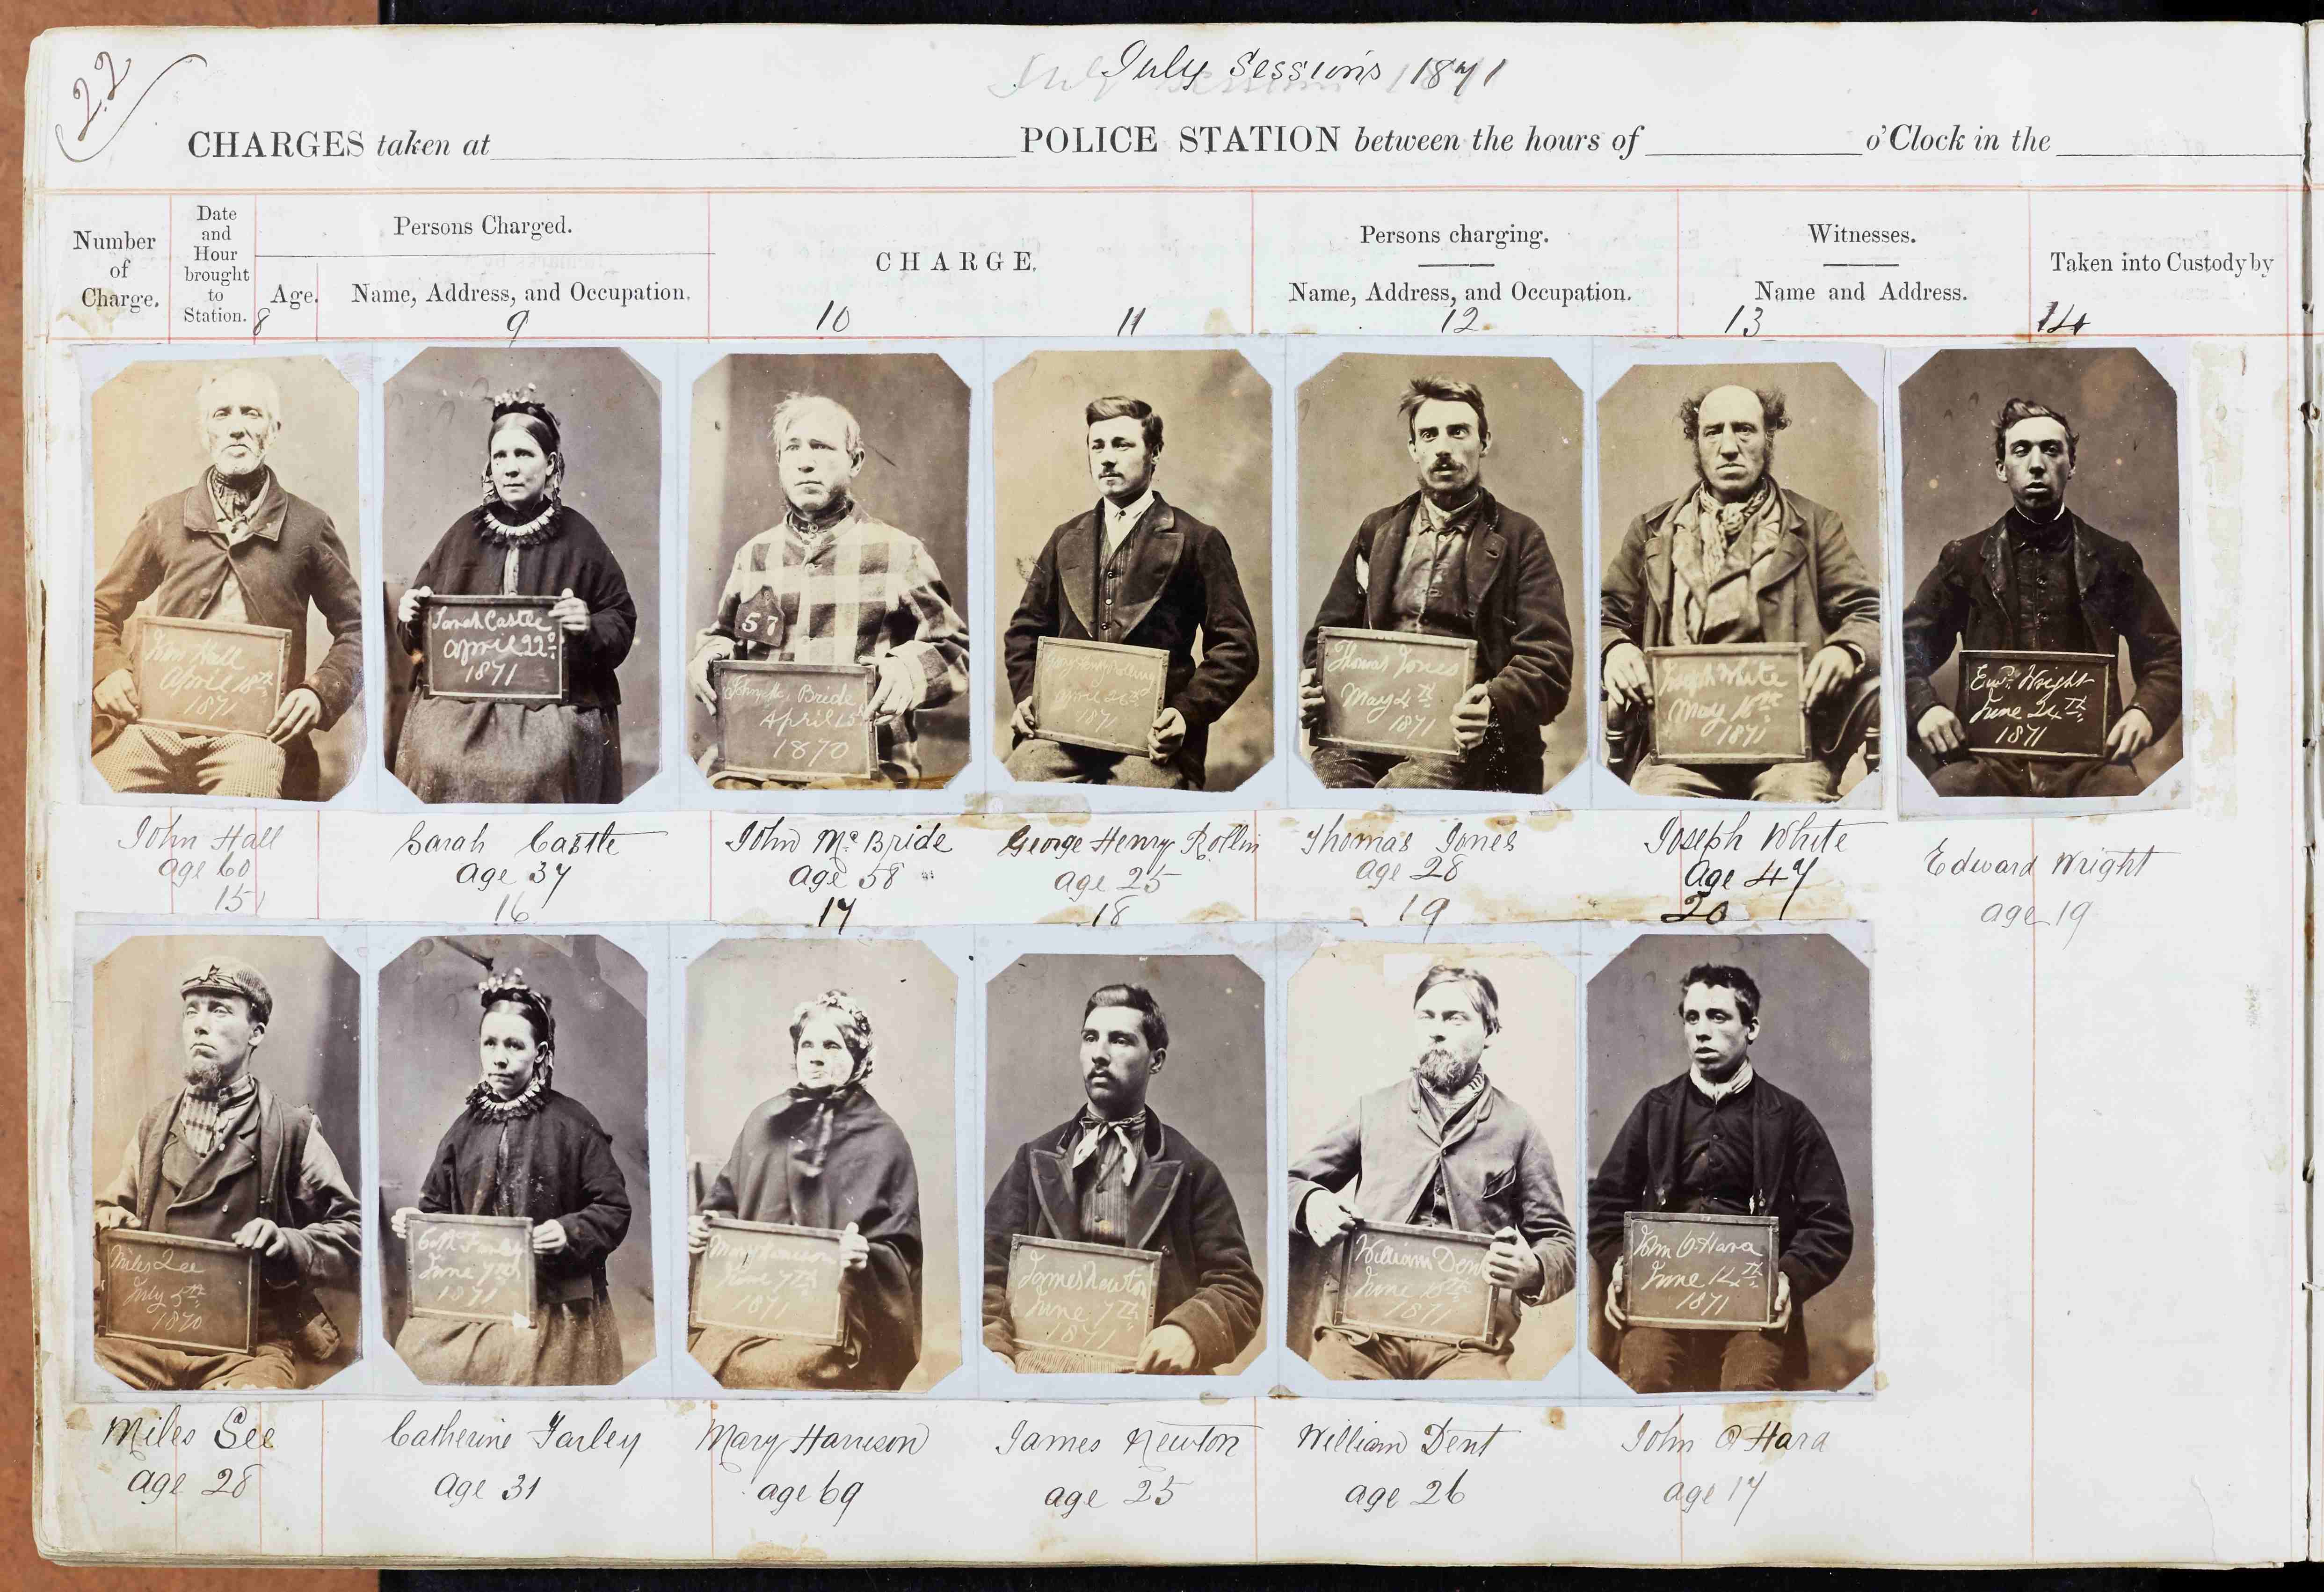 22
July Sessions 1871
CHARGES taken at POLICE STATION between the hours of o'Clock in the
Number of Charge.
Date and Hour brought to Station.
Persons Charged.
Age.
Name, Address, and Occupation.
CHARGE.
Persons charging.
Name, Address, and Occupation.
Witnesses.
Name and Address.
Taken into Custody by
8 9 10 11 12 13 14
John Hall
April 18th
1871
Sarah Castle
April 22d
1871
57
John Mc Bride
April 15
1870
George Henry Rolling
April 26th
1871
Thomas Jones
May 4th
1871
Joseph White
May 16th
1871
Ewd. Wright
June 24th
1871
John Hall
age 60
15
Sarah Castle
age 37
16
John Mc Bride
age 58
17
George Henry Rollin
age 25
18
Thomas Jones
age 28
19
Joseph White
age 47
20
Edward Wright
age 19
Miles Lee
July 5th
1870
Cath Farley
June 7th
1871
Mary Harrison
June 7th
1871
James Newton
June 7th
1871
William Dent
June 10th
1871
John O'Hara
June 14th
1871
Miles Lee
age 28
Catherine Farley
age 31
Mary Harrison
age 69
James Newton
age 25
William Dent
age 26
John O Hara
age 17